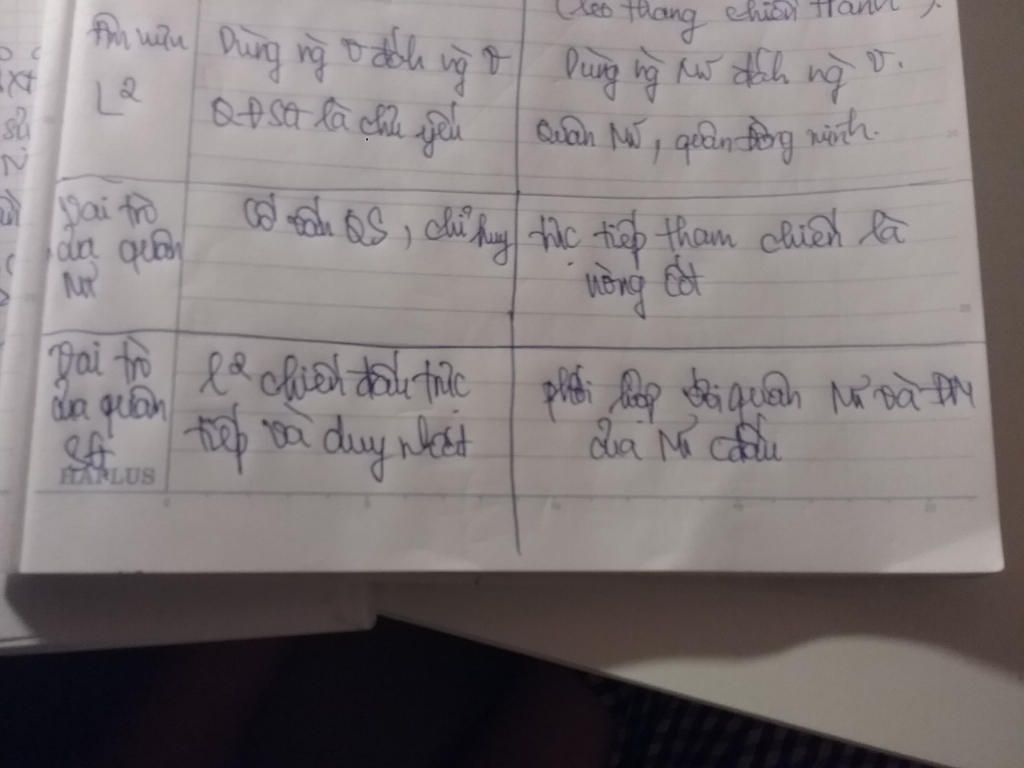 (leo thang chiến tranh).
Âm mưu
L²
Dùng ng V đánh ng V
QĐSG là chủ yếu
Dùng ng Mĩ đánh ng V.
Quân Mĩ, quân đồng minh.
Vai trò
của quân
Mĩ
Cố vấn QS, chỉ huy
trực tiếp tham chiến là
nòng cốt
Vai trò
của quân
SG
l² chiến đấu trực
tiếp và duy nhất
phối hợp với quân Mĩ và ĐM
của Mĩ cđấu
HAPLUS